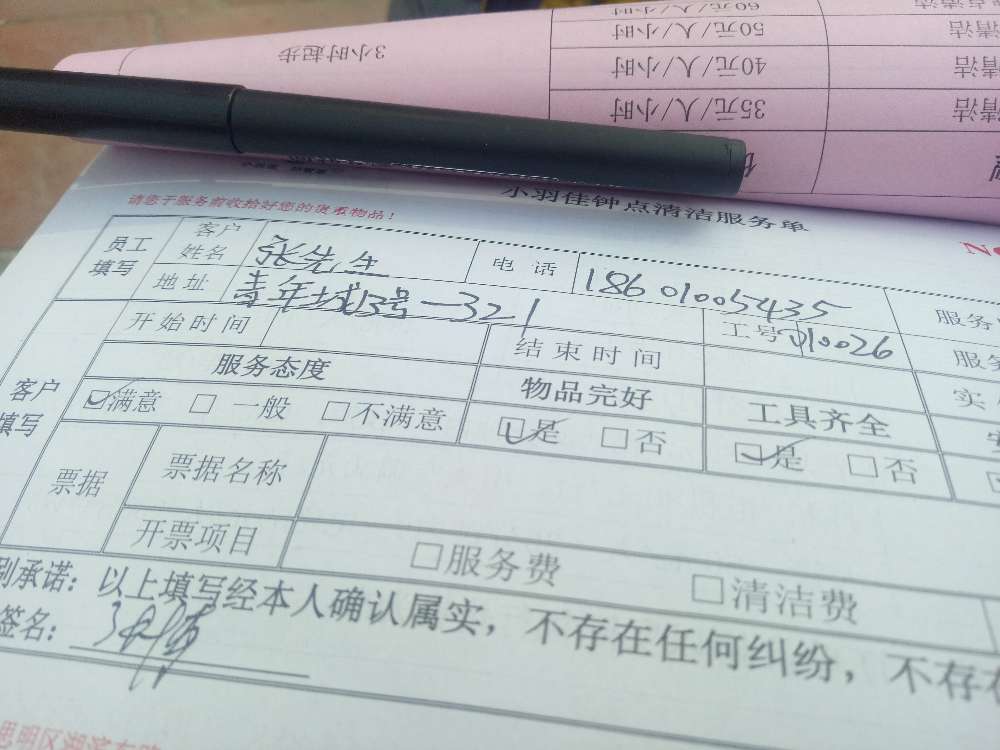 60元/人/小时
清洁
50元/人/小时
清洁
3小时起步
40元/人/小时
清洁
35元/人/小时
清洁
小羽佳钟点清洁服务单
请您于服务前收拾好您的贵重物品！
员工填写
客户姓名
张先生
电话
18601005435
服务
地址
青年城13号-321
工号
010026
服务
客户填写
开始时间
结束时间
实
服务态度
物品完好
工具齐全
满意 一般 不满意
是 否
是 否
票据
票据名称
开票项目
服务费
清洁费
承诺：以上填写经本人确认属实，不存在任何纠纷，不存在
签名：
思明区湖滨